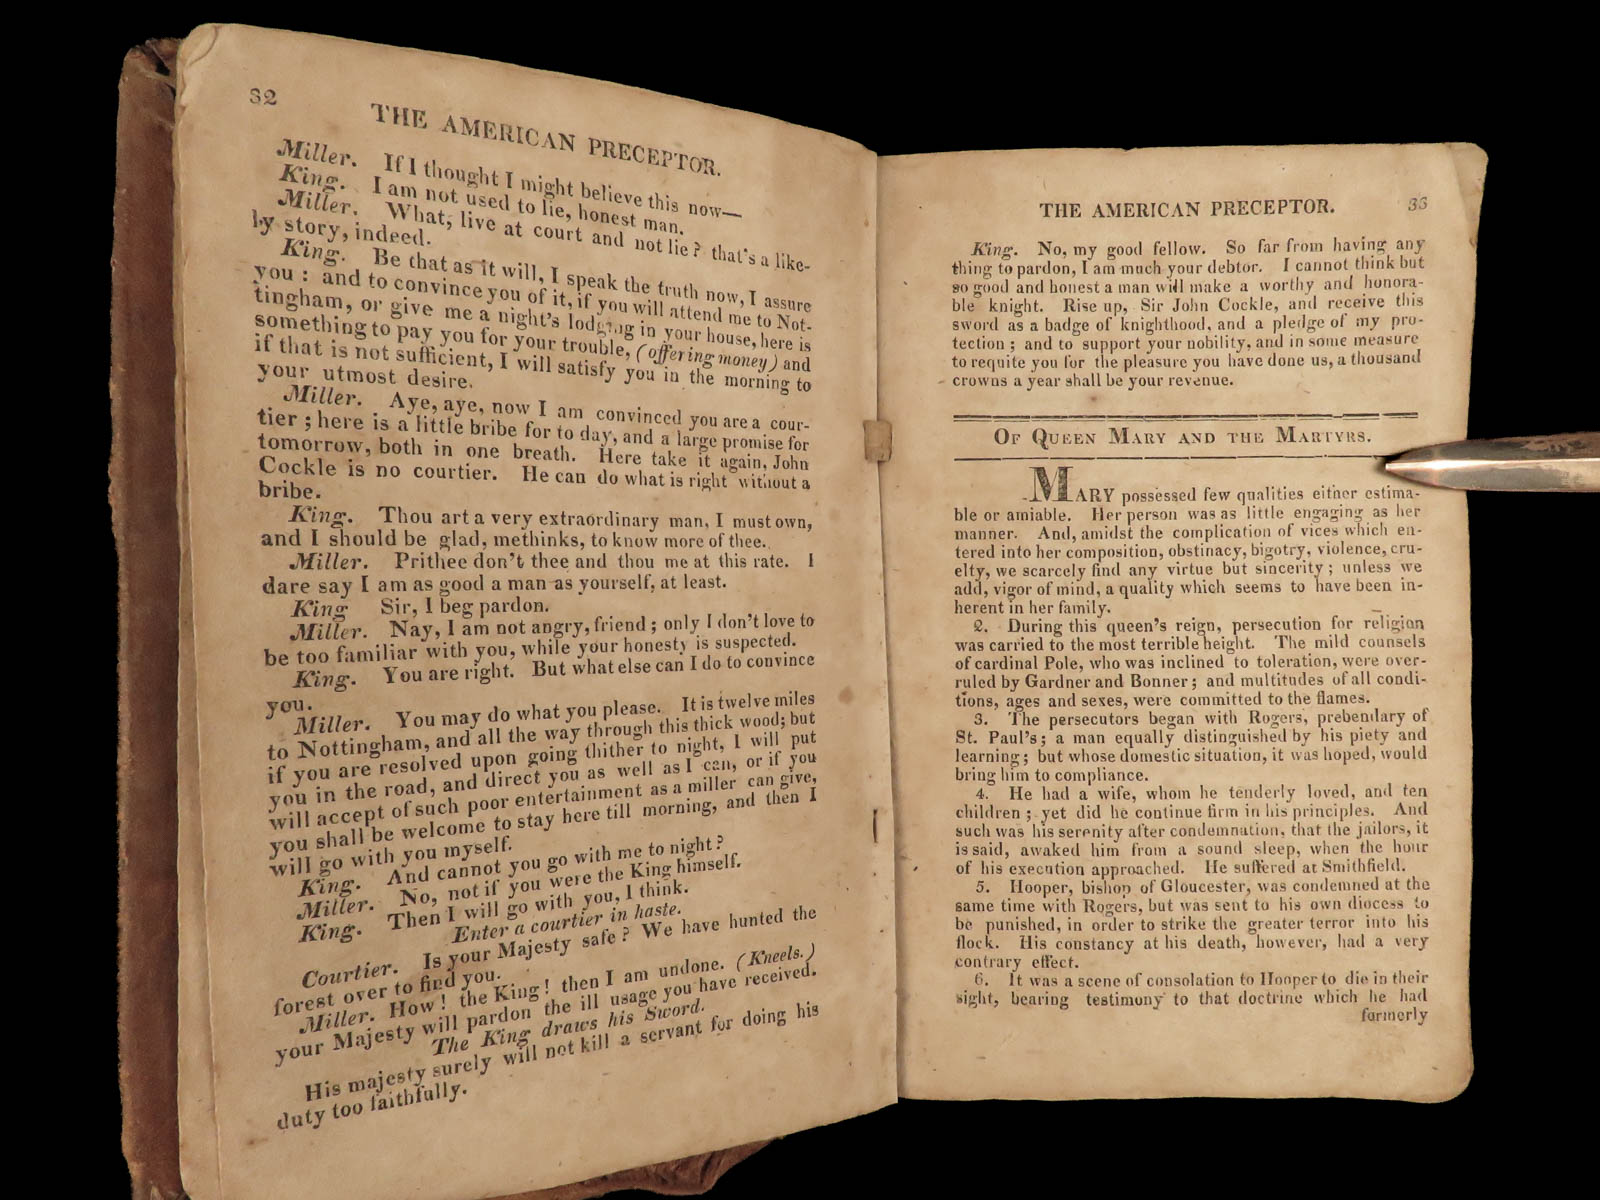 32
THE AMERICAN PRECEPTOR.
Miller. If I thought I might believe this now—
King. I am not used to lie, honest man.
Miller. What, live at court and not lie? that's a like-
ly story, indeed.
King. Be that as it will, I speak the truth now, I assure
you: and to convince you of it, if you will attend me to Not-
tingham, or give me a night's lodging in your house, here is
something to pay you for your trouble, (offering money) and
if that is not sufficient, I will satisfy you in the morning to
your utmost desire.
Miller. Aye, aye, now I am convinced you are a cour-
tier; here is a little bribe for to day, and a large promise for
tomorrow, both in one breath. Here take it again, John
Cockle is no courtier. He can do what is right without a
bribe.
King. Thou art a very extraordinary man, I must own,
and I should be glad, methinks, to know more of thee.
Miller. Prithee don't thee and thou me at this rate. I
dare say I am as good a man as yourself, at least.
King Sir, I beg pardon.
Miller. Nay, I am not angry, friend; only I don't love to
be too familiar with you, while your honesty is suspected.
King. You are right. But what else can I do to convince
you.
Miller. You may do what you please. It is twelve miles
to Nottingham, and all the way through this thick wood; but
if you are resolved upon going thither to night, I will put
you in the road, and direct you as well as I can, or if you
will accept of such poor entertainment as a miller can give,
you shall be welcome to stay here till morning, and then I
will go with you myself.
King. And cannot you go with me to night?
Miller. No, not if you were the King himself.
King. Then I will go with you, I think.
Enter a courtier in haste.
Courtier. Is your Majesty safe? We have hunted the
forest over to find you.
Miller. How! the King! then I am undone. (Kneels.)
your Majesty will pardon the ill usage you have received.
The King draws his Sword.
His majesty surely will not kill a servant for doing his
duty too faithfully.
THE AMERICAN PRECEPTOR. 33
King. No, my good fellow. So far from having any
thing to pardon, I am much your debtor. I cannot think but
so good and honest a man will make a worthy and honora-
ble knight. Rise up, Sir John Cockle, and receive this
sword as a badge of knighthood, and a pledge of my pro-
tection; and to support your nobility, and in some measure
to requite you for the pleasure you have done us, a thousand
crowns a year shall be your revenue.
OF QUEEN MARY AND THE MARTYRS.
MARY possessed few qualities either estima-
ble or amiable. Her person was as little engaging as her
manner. And, amidst the complication of vices which en-
tered into her composition, obstinacy, bigotry, violence, cru-
elty, we scarcely find any virtue but sincerity; unless we
add, vigor of mind, a quality which seems to have been in-
herent in her family.
2. During this queen's reign, persecution for religion
was carried to the most terrible height. The mild counsels
of cardinal Pole, who was inclined to toleration, were over-
ruled by Gardner and Bonner; and multitudes of all condi-
tions, ages and sexes, were committed to the flames.
3. The persecutors began with Rogers, prebendary of
St. Paul's; a man equally distinguished by his piety and
learning; but whose domestic situation, it was hoped, would
bring him to compliance.
4. He had a wife, whom he tenderly loved, and ten
children; yet did he continue firm in his principles. And
such was his serenity after condemnation, that the jailors, it
is said, awaked him from a sound sleep, when the hour
of his execution approached. He suffered at Smithfield.
5. Hooper, bishop of Gloucester, was condemned at the
same time with Rogers, but was sent to his own diocess to
be punished, in order to strike the greater terror into his
flock. His constancy at his death, however, had a very
contrary effect.
6. It was a scene of consolation to Hooper to die in their
sight, bearing testimony to that doctrine which he had
formerly